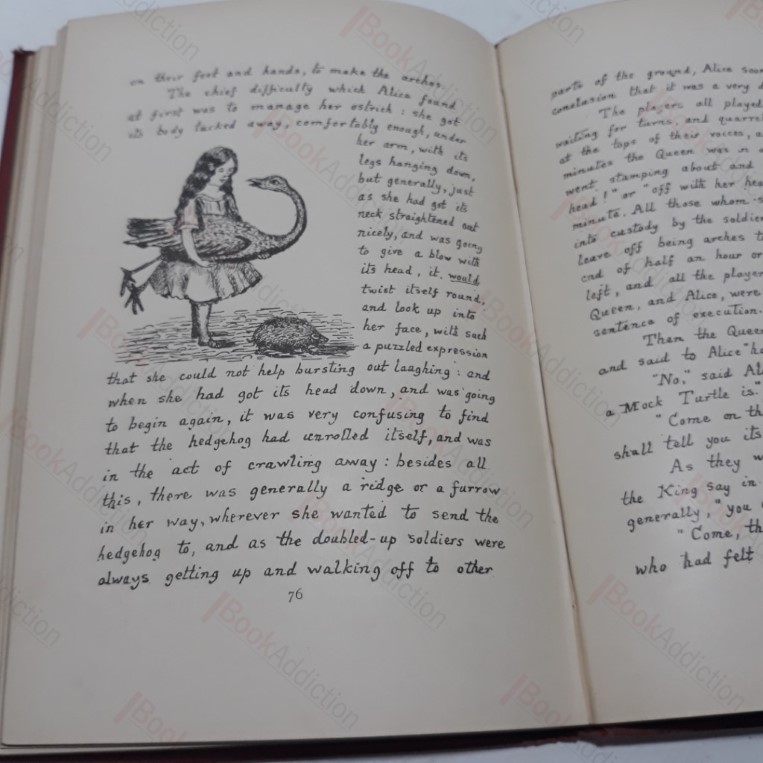 on their feet and hands, to make the arches.
The chief difficulty which Alice found
at first was to manage her ostrich: she got
its body tucked away, comfortably enough, under
her arm, with its
legs hanging down,
but generally, just
as she had got its
neck straightened out
nicely, and was going
to give a blow with
its head, it would
twist itself round,
and look up into
her face, with such
a puzzled expression
that she could not help bursting out laughing: and
when she had got its head down, and was going
to begin again, it was very confusing to find
that the hedgehog had unrolled itself, and was
in the act of crawling away: besides all
this, there was generally a ridge or a furrow
in her way, wherever she wanted to send the
hedgehog to, and as the doubled-up soldiers were
always getting up and walking off to other
76
parts of the ground, Alice
conclusion that it was a very
The players all played
waiting for turns, and
at the tops of their voices,
minutes the Queen was in
went stamping about and
head!" or "off with her
minute. All those whom
into custody by the
leave off being arches
end of half an hour or
left, and all the
Queen, and Alice, were
sentence of execution.
Then the Queen
and said to Alice
"No," said
a Mock Turtle is."
"Come on
shall tell you its
As they
the King say in
generally, "you
"Come,
who had felt
BookAddiction